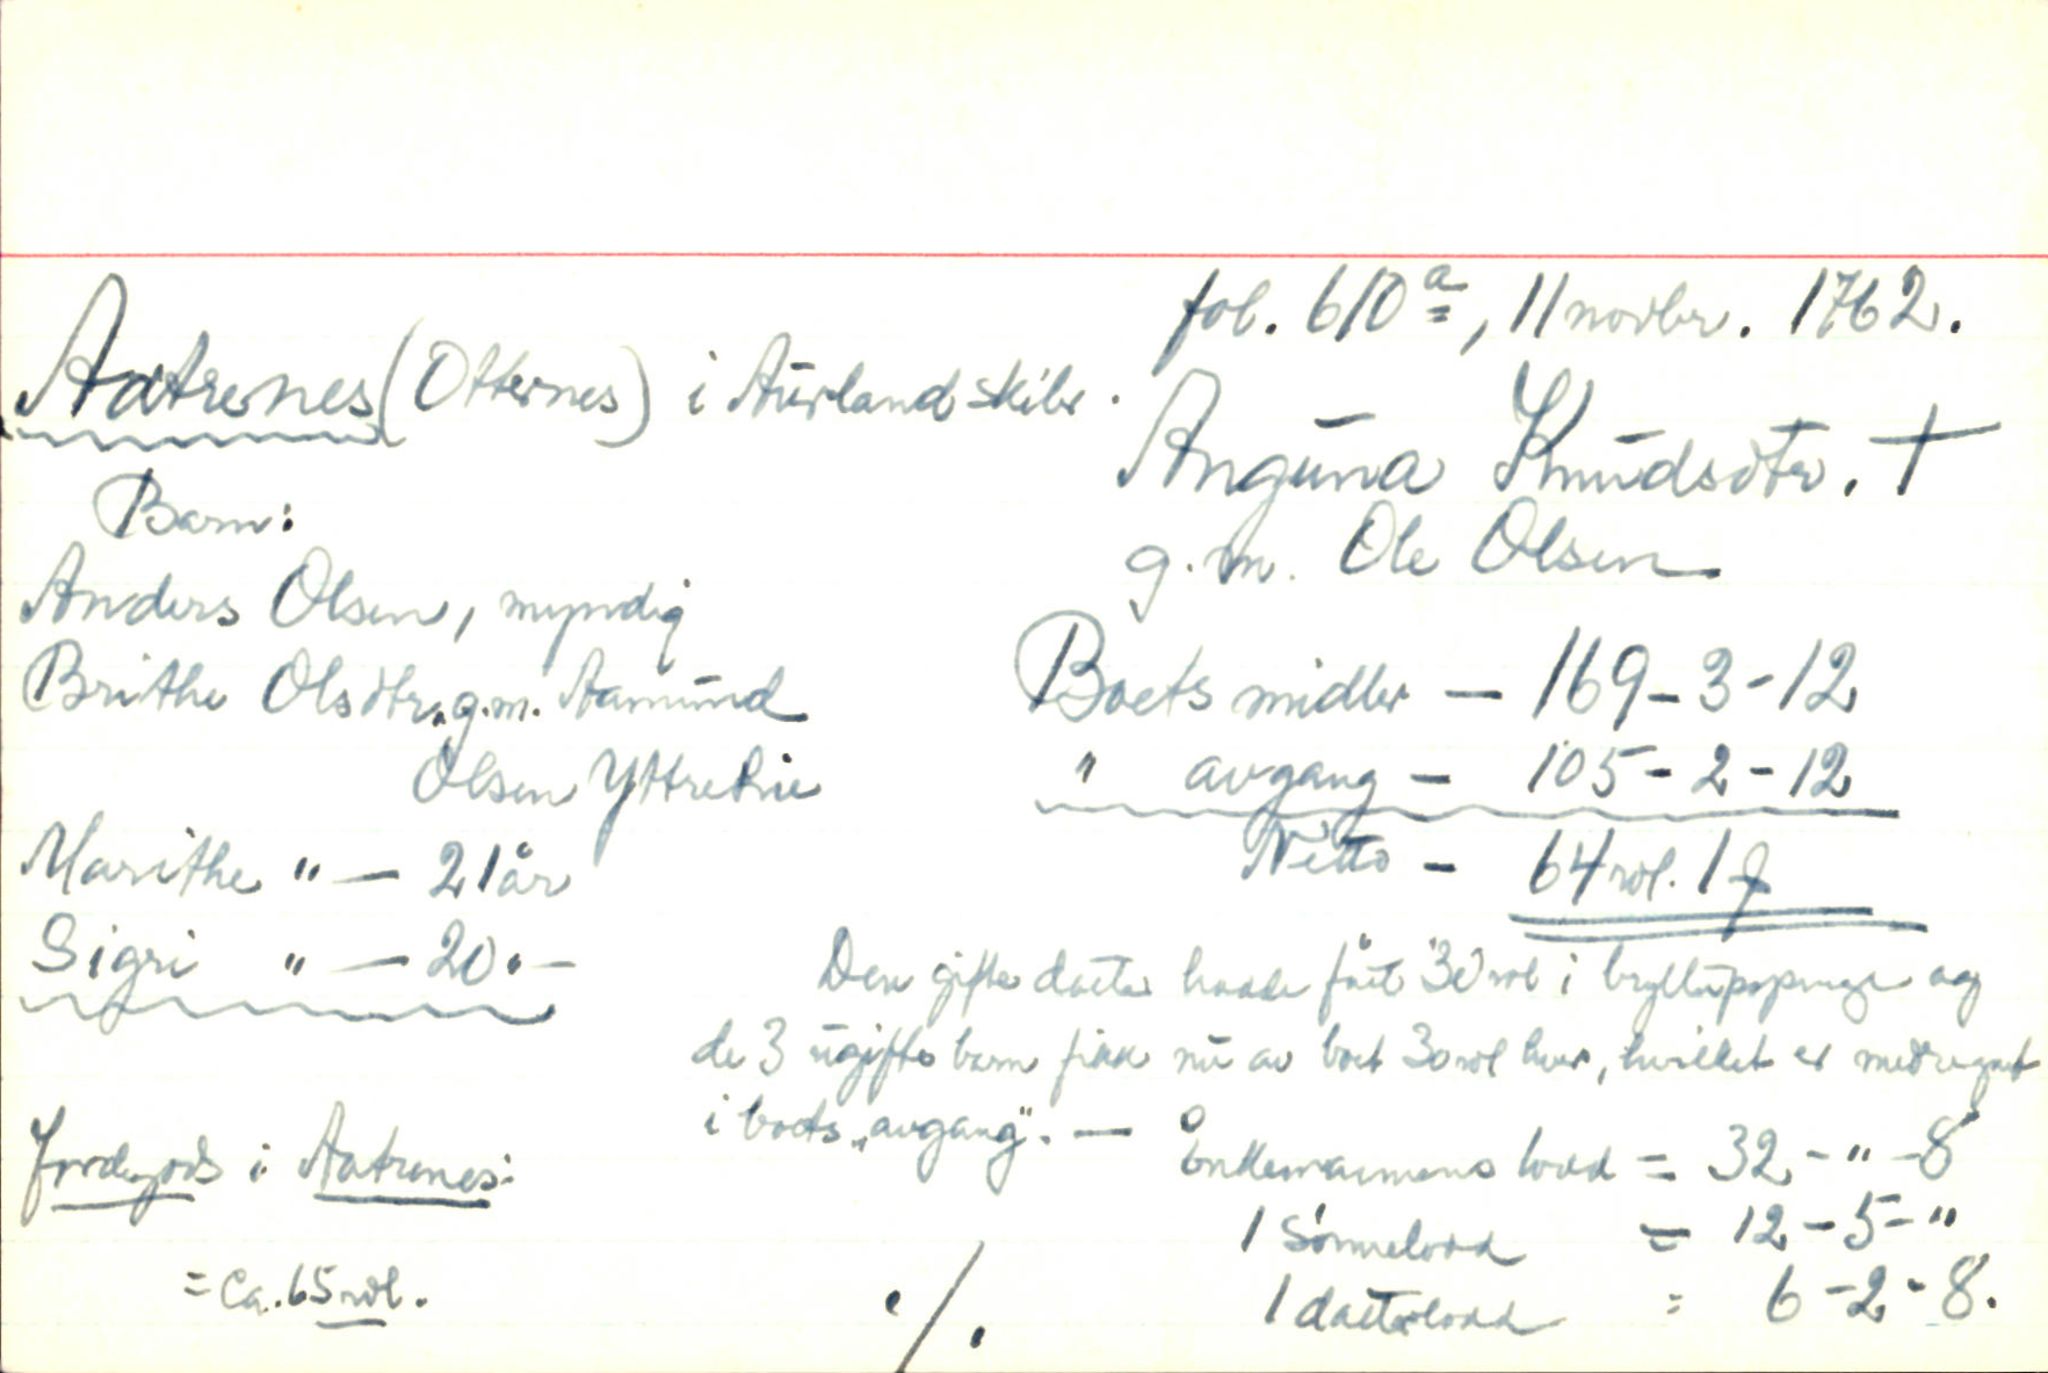 fol. 610ª, 11 novbr. 1762.
Aatrenes (Otternes) i Aurland skibr.
Anguna Knudsdtr. †
g. m. Ole Olsen
Barn:
Anders Olsen, myndig
Brithe Olsdtr. g.m. Aamund
Olsen Yttrelie
Marithe " — 21 år
Sigri " — 20 " —
Boets midler — 169 - 3 - 12
" avgang — 105 - 2 - 12
Netto — 64 rdl. 1
Den gifte datter hadde fåt 30 rdl i bryllupspenge og
de 3 ugifte barn fikk nu av boet 30 rdl hver, hvilket er medregnet
i boets „avgang". — Enkemannens lodd = 32 - " - 8
1 sønnelodd = 12 - 5 - "
1 datterlodd = 6 - 2 - 8.
Jordegods i Aatrenes:
= Ca. 65 rdl.
./.